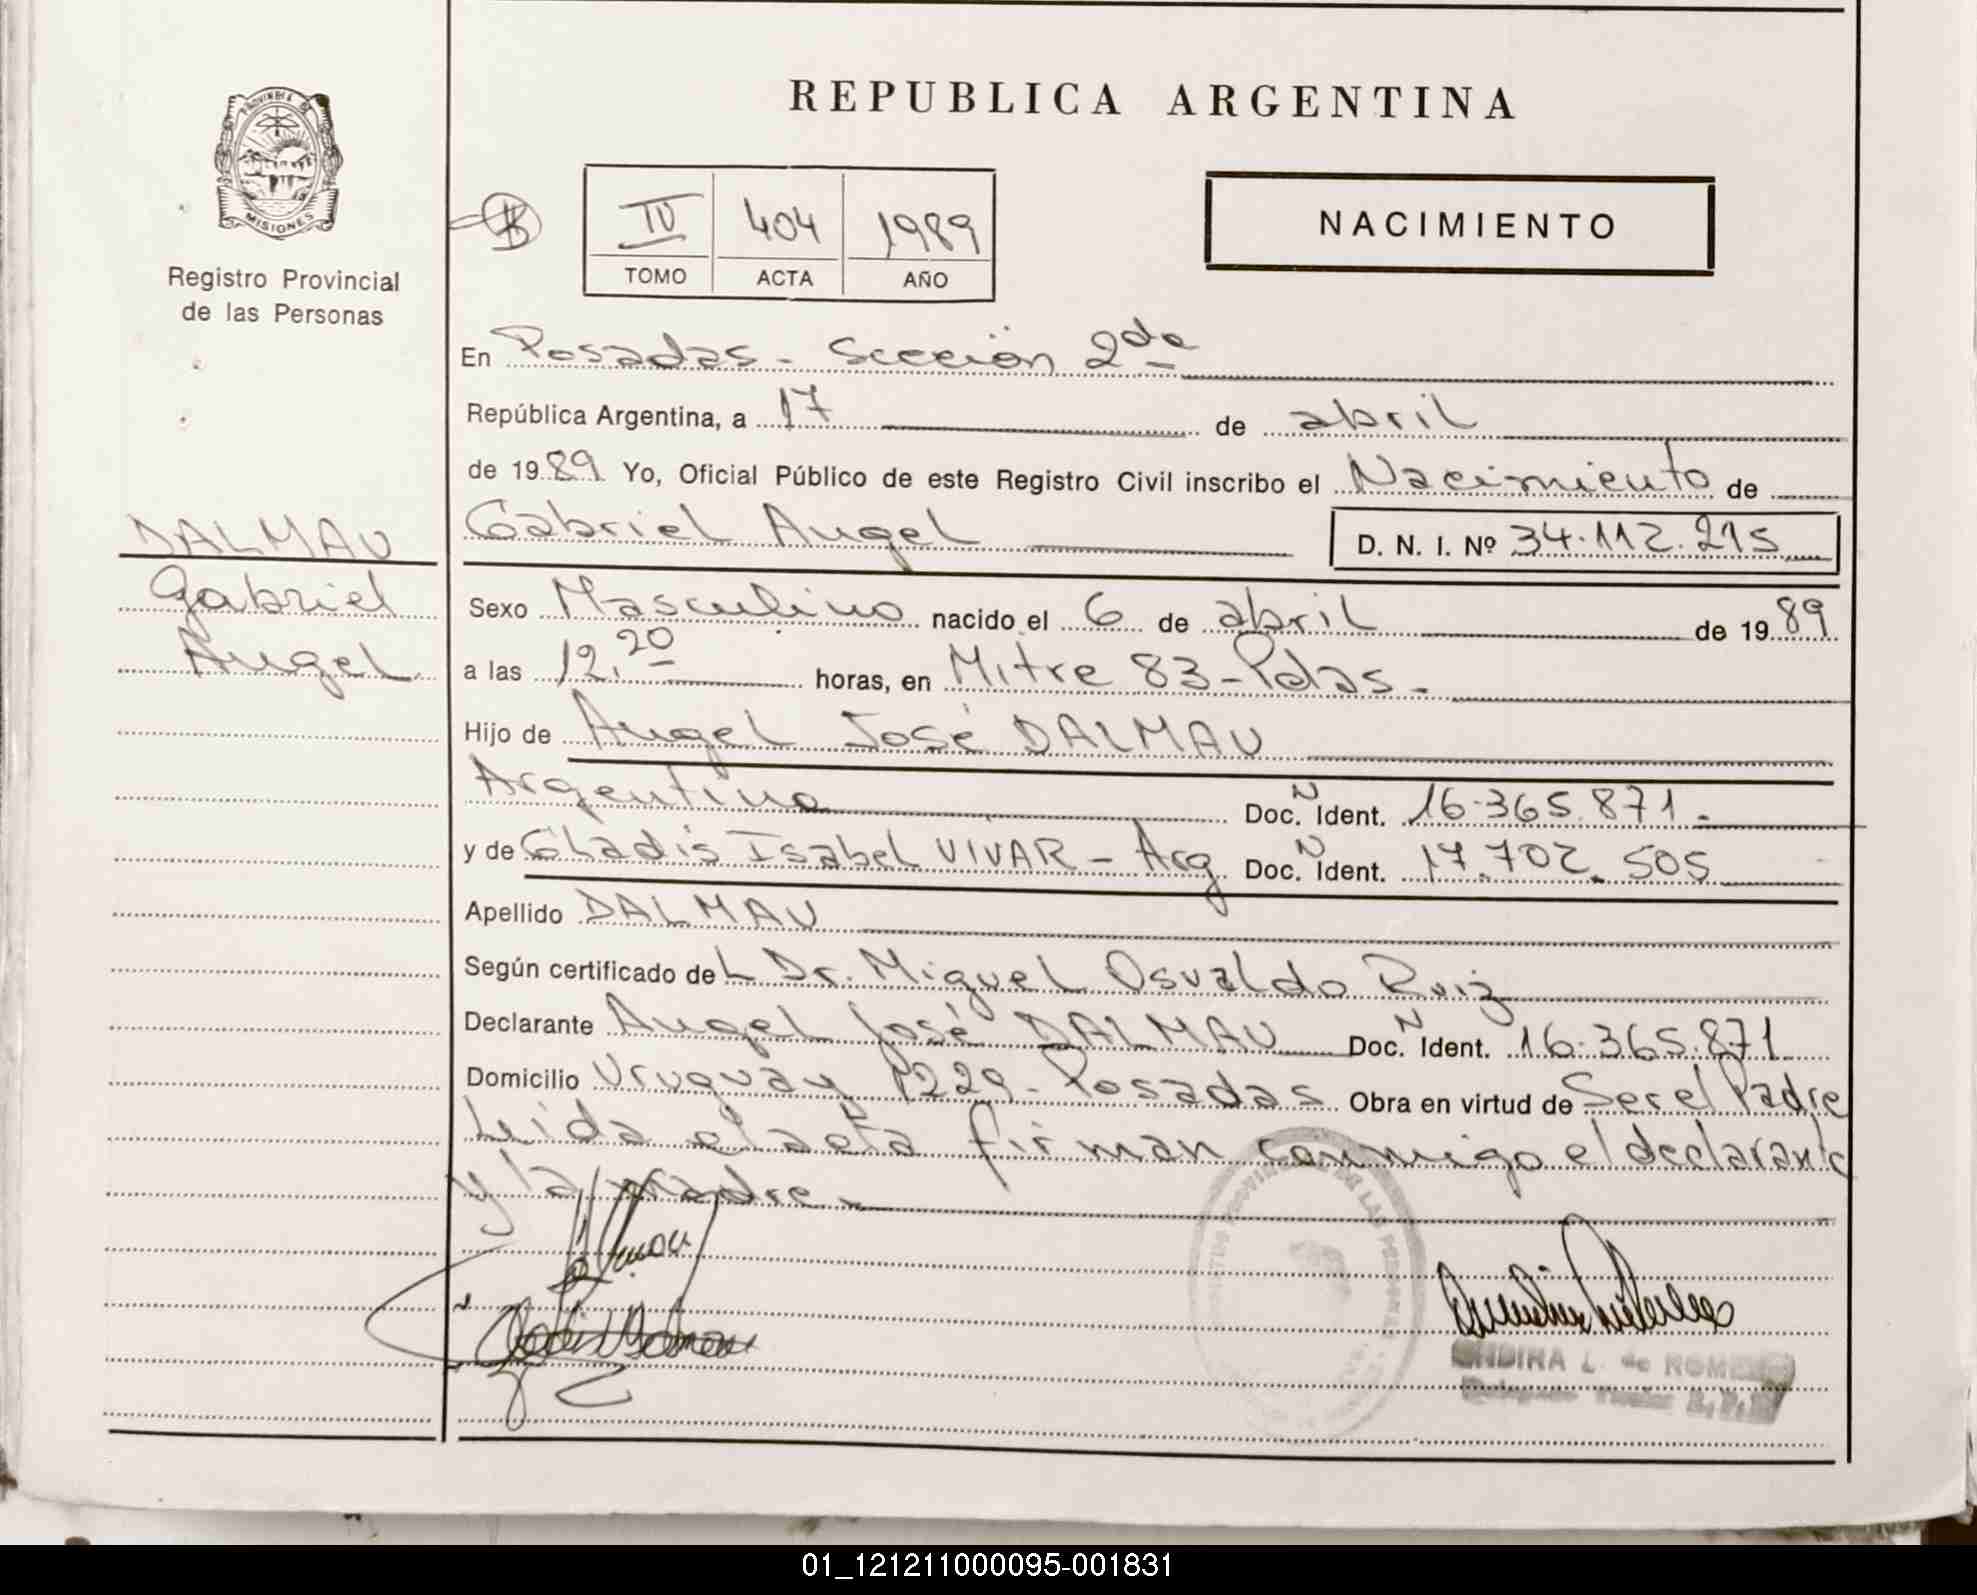 REPUBLICA ARGENTINA
PROVINCIA DE
MISIONES
Registro Provincial
de las Personas
IV 404 1989
TOMO ACTA AÑO
NACIMIENTO
En Posadas - Sección 2da
República Argentina, a 17 de abril
de 1989 Yo, Oficial Público de este Registro Civil inscribo el Nacimiento de
DALMAU
Gabriel
Angel
Gabriel Angel D. N. I. Nº 34.112.215
Sexo Masculino nacido el 6 de abril de 1989
a las 12.20 horas, en Mitre 83 - Pdas.
Hijo de Angel José DALMAU
Argentino Doc. N Ident. 16.365.871.
y de Gladis Isabel VIVAR - Arg Doc. N Ident. 17.702.505
Apellido DALMAU
Según certificado del Dr. Miguel Osvaldo Ruiz
Declarante Angel José DALMAU Doc. N Ident. 16.365.871
Domicilio Uruguay 1229 - Posadas Obra en virtud de Ser el Padre
Leida el acta firman conmigo el declarante
y la madre.
L. de
01_121211000095-001831